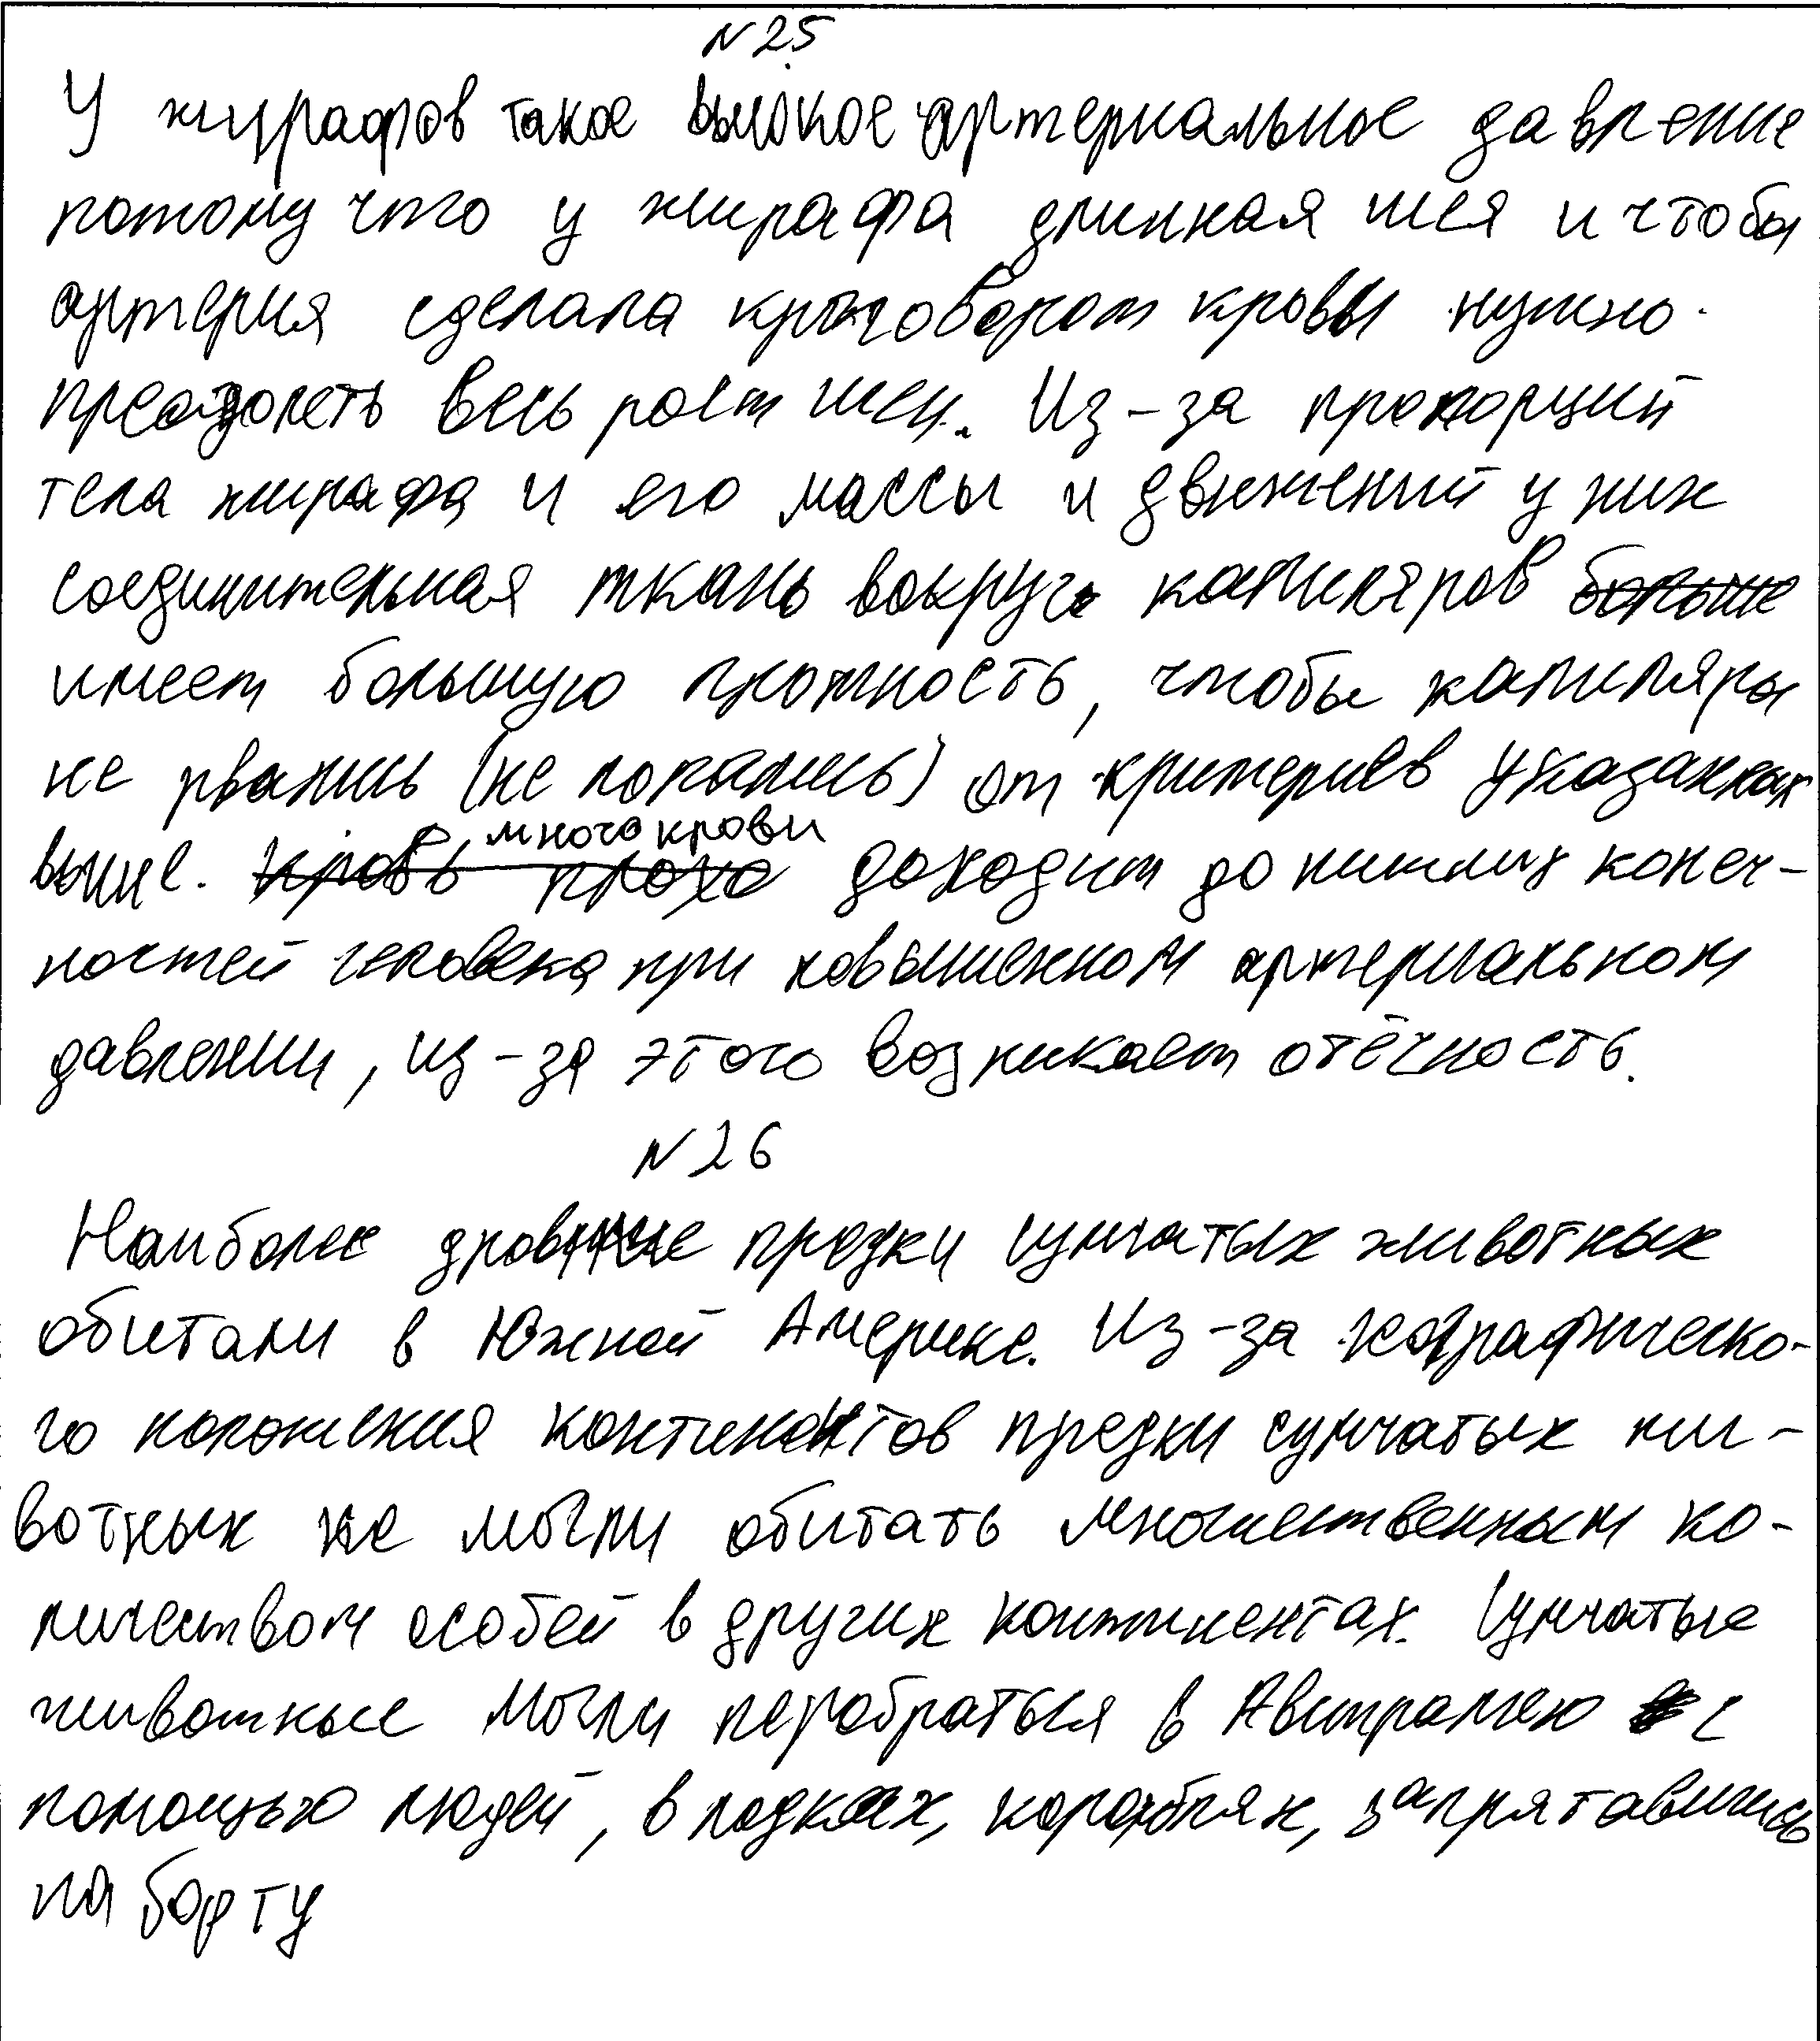 N 25
У жирафов такое высокое артериальное давление
потому что у жирафа длинная шея и чтобы
артерия сделала круговорот кровы нужно
преодолеть весь рост шеи. Из-за пропорций
тела жирафа и его массы и движений у них
соединительная ткань вокруг капиляров больше
имеет большую плотность, чтобы капиляры
не рвались (не лопались) от критериев указанных
выше. кровь плохо много крови доходит до нижних конеч-
ностей человека при повышенном артериальном
давлении, из-за этого возникает отёчность.
N 26
Наиболее древние предки сумчатых животных
обитали в Южной Америке. Из-за географическо-
го положения континентов предки сумчатых жи-
вотных не могли обитать множественным ко-
личеством особей в других континентах. Сумчатые
животные могли перебраться в Австралию с
помощью людей, в лодках, кораблях, запрятавшись
на борту